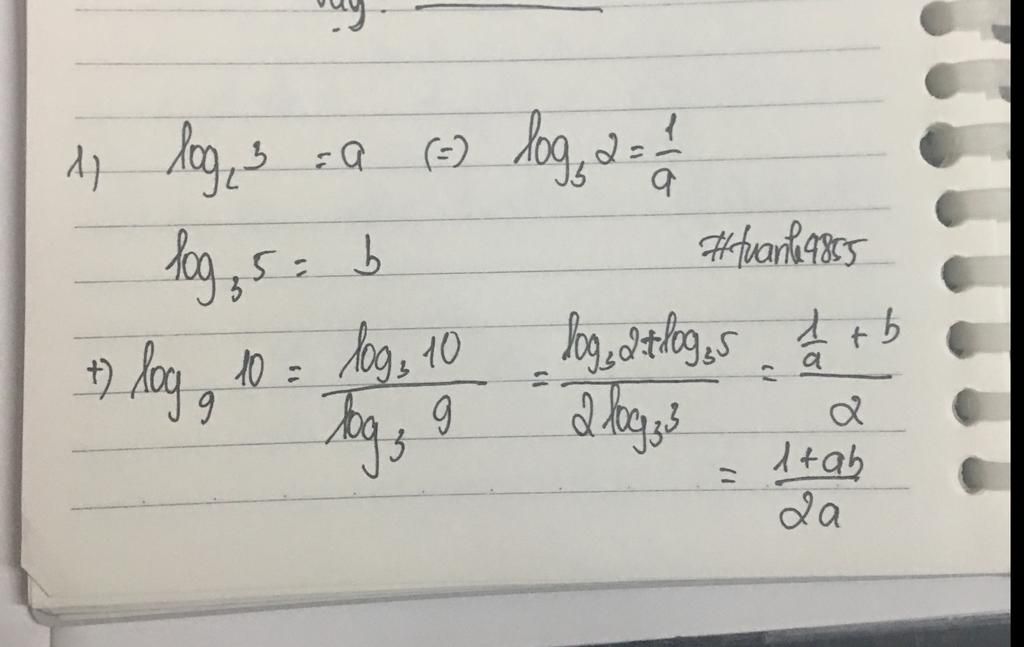 1) log₂3 = a (=) log₃2 = 1/a
log₃5 = b #tuanh9855
+) log₉10 = log₃10 / log₃9 = (log₃2 + log₃5) / (2log₃3) = (1/a + b) / 2
= (1+ab) / 2a